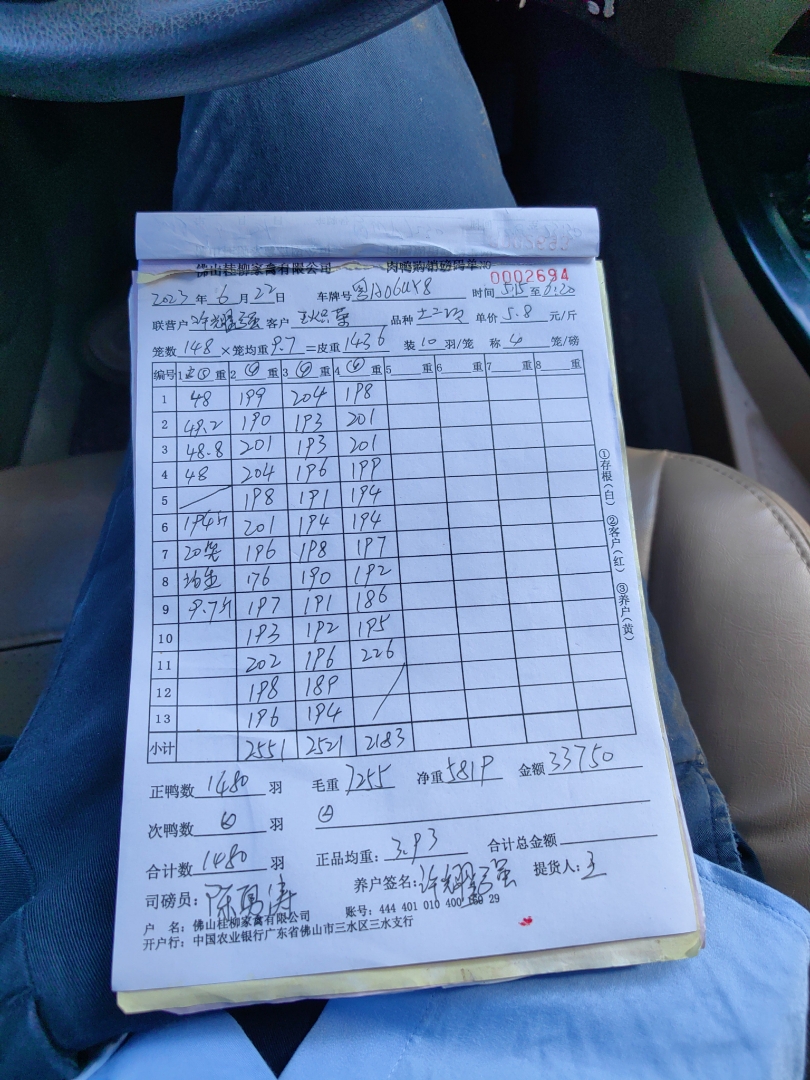 佛山桂柳家禽有限公司 肉鸭购销磅码单 NO 0002694
2023 年 6 月 22 日 车牌号 粤A06UY8 时间 5:15 至 6:20
联营户 许耀强 客户 荣 品种 单价 5.8 元/斤
笼数 148 ×笼均重 9.7 =皮重 1436 装 10 羽/笼 称 4 笼/磅
编号 1 重 2 ④ 重 3 ④ 重 4 ④ 重 5 重 6 重 7 重 8 重
1 48 199 204 198
2 49.2 190 193 201
3 48.8 201 193 201
4 48 204 196 199
5 198 191 194
6 194斤 201 194 194
7 20笼 196 198 197
8 均重 176 190 192
9 9.7斤 197 191 186
10 193 192 195
11 202 196 226
12 198 189
13 196 194
小计 2551 2521 2183
正鸭数 1480 羽 毛重 7255 净重 5819 金额 33750
次鸭数 羽
合计数 1480 羽 正品均重: 3.93 合计总金额
司磅员: 陈勇涛 养户签名: 许耀强 提货人: 王
户 名: 佛山桂柳家禽有限公司 账号: 444 401 010 400 29
开户行: 中国农业银行广东省佛山市三水区三水支行
①存根(白) ②客户(红) ③养户(黄)